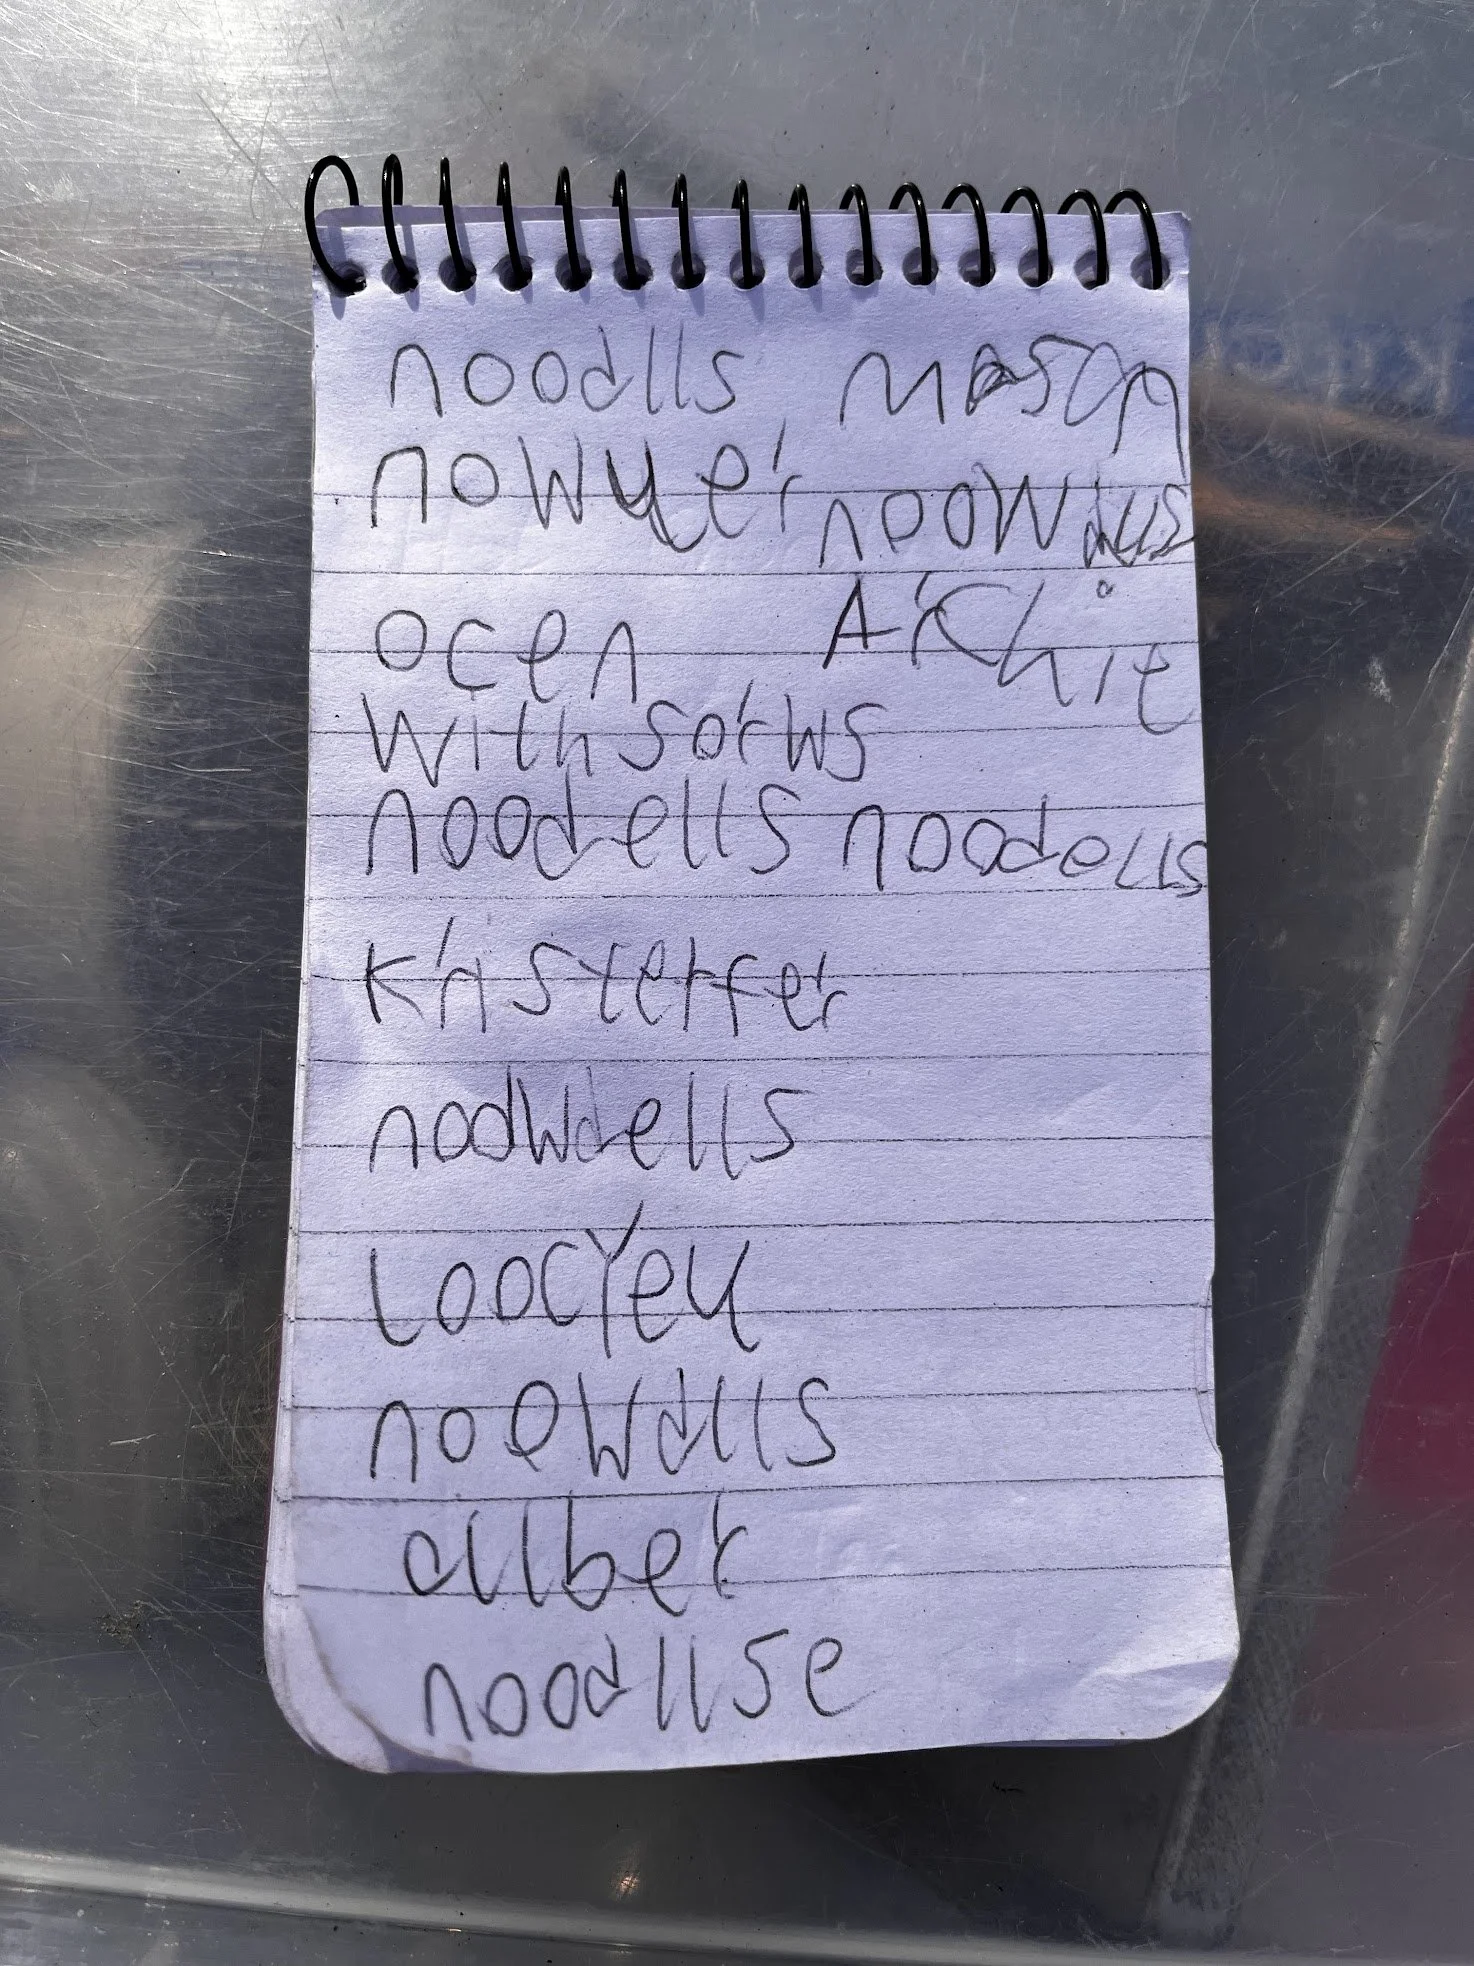 noodlls mason
nowyer noowdlls
ocen Archie
with sorws
noodells noodells
Kristerfer
nodwdells
loocyeu
noewdlls
allber
noodllse